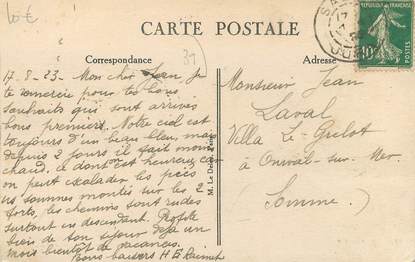 10€
CARTE POSTALE
31
Correspondance
Adresse
RÉPUBLIQUE FRANÇAISE
10c
POSTES
17-8-23 - Mon cher Jean, Je
te remercie pour tes bons
souhaits qui sont arrivés
bons premiers. Notre ciel est
toujours d'un beau bleu, mais
depuis 2 jours il fait moins
chaud, ce dont c'est heureux car
on peut escalader les pics
Nous sommes montés sur les
forts, les chemins sont rudes
surtout en descendant. Profite
bien de ton séjour déjà un
mois bientôt de vacances.
Bons baisers H
Monsieur Jean
Laval
Villa Le Grelot
à Onival-sur-Mer
Somme